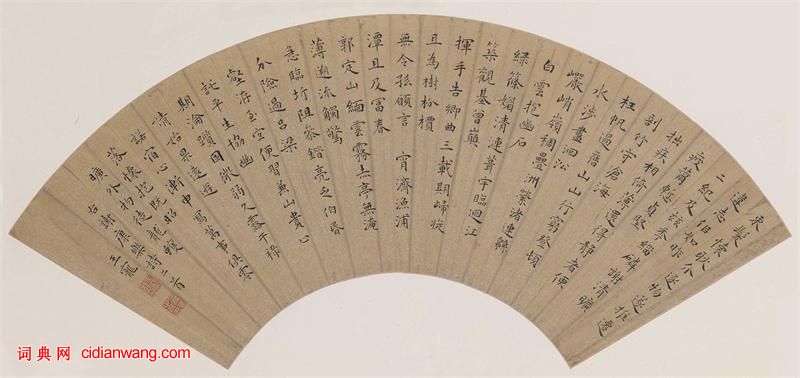 束髮懷耿介逐物遂推遷
違志似如昨
二紀及茲年緇磷謝清曠
疲薾慙貞堅
拙疾相倚薄還得靜者便
剖竹守滄海
枉帆過舊山山行窮登頓
水涉盡洄沿
巖峭嶺稠疊洲縈渚連緜
白雲抱幽石
綠篠媚清漣葺宇臨迴江
築觀基曾巔
揮手告鄉曲三載期歸旋
且為樹枌檟
無令孤願言 宵濟漁浦
潭旦及富春
郭定山緬雲霧赤亭無淹
薄遡流觸驚
急臨圻阻參錯亮乏伯昏
分險過呂梁
壑洊至宜便習兼山貴止
託平生協幽
期淪躓困微弱久露干祿
請始果遠遊
諾宿心漸申寫萬事俱零
落懷抱既昭
曠外物徒龍蠖
右謝康樂詩二首
王寵
词典网 cidianwang.com